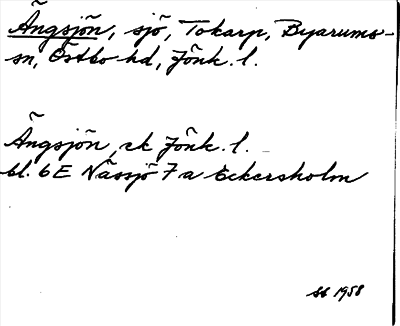 Ängsjön, sjö, Tokarp, Byarums-
sn, Östbo hd, Jönk. l.
Ängsjön, ek Jönk. l.
bl. 6E Nässjö 7a Eckersholm
Sb 1958